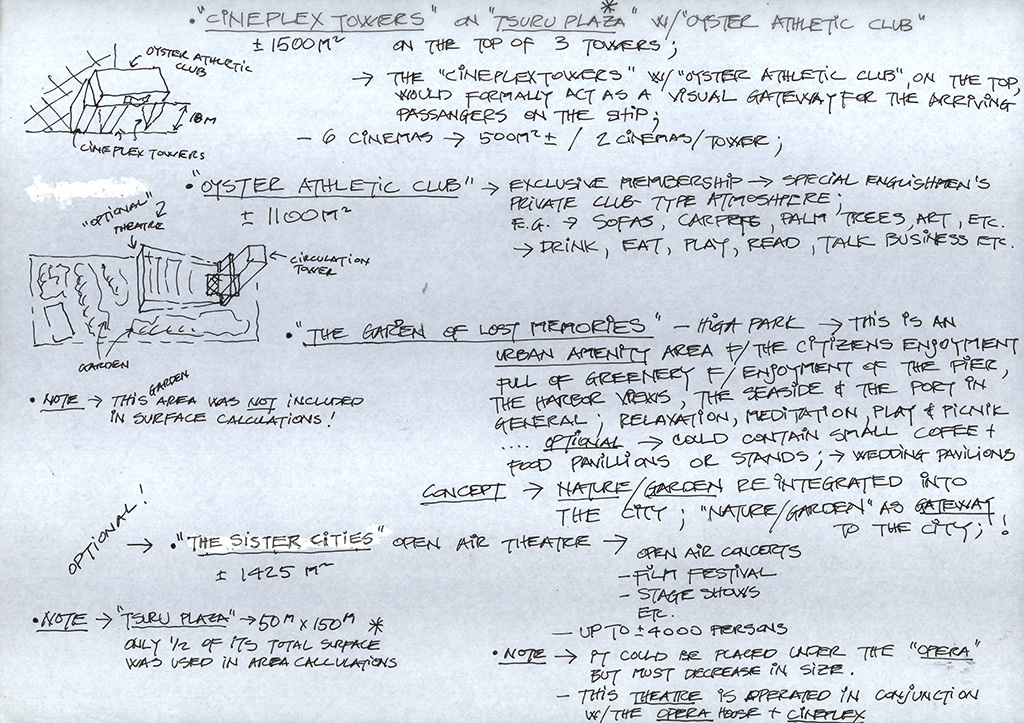 • "CINEPLEX TOWERS" ON "TSURU PLAZA*" W/"OYSTER ATHLETIC CLUB"
± 1500 M² ON THE TOP OF 3 TOWERS;
→ THE "CINEPLEXTOWERS" W/"OYSTER ATHLETIC CLUB", ON THE TOP,
WOULD FORMALLY ACT AS A VISUAL GATEWAY FOR THE ARRIVING
PASSANGERS ON THE SHIP;
– 6 CINEMAS → 500M² ± / 2 CINEMAS/TOWER;
OYSTER ATHLETIC
CLUB
18M
CINEPLEX TOWERS
• "OYSTER ATHLETIC CLUB" → EXCLUSIVE MEMBERSHIP → SPECIAL ENGLISHMEN'S
± 1100 M² PRIVATE CLUB-TYPE ATMOSHPERE;
E.G. → SOFAS, CARPETS, PALM TREES, ART, ETC.
→ DRINK, EAT, PLAY, READ, TALK BUSINESS ETC.
"OPTIONAL"
THEATRE
CIRCULATION
TOWER
GARDEN
• "THE GARDEN OF LOST MEMORIES" – HIGA PARK → THIS IS AN
URBAN AMENITY AREA F/THE CITIZENS ENJOYMENT
FULL OF GREENERY F/ ENJOYMENT OF THE PIER,
THE HARBOR VIEWS, THE SEASIDE & THE PORT IN
GENERAL; RELAXATION, MEDITATION, PLAY & PICNIK
.... OPTIONAL → COULD CONTAIN SMALL COFFEE +
FOOD PAVILLIONS OR STANDS; → WEDDING PAVILIONS
• NOTE → THIS GARDEN AREA WAS NOT INCLUDED
IN SURFACE CALCULATIONS!
CONCEPT → NATURE/GARDEN REINTEGRATED INTO
THE CITY; "NATURE/GARDEN" AS GATEWAY
TO THE CITY; !
OPTIONAL!
→ • "THE SISTER CITIES" OPEN AIR THEATRE →
± 1425 M²
OPEN AIR CONCERTS
– FILM FESTIVAL
– STAGE SHOWS
ETC.
– UP TO ± 4000 PERSONS
• NOTE → "TSURU PLAZA" → 50M X 150M *
ONLY 1/2 OF ITS TOTAL SURFACE
WAS USED IN AREA CALCULATIONS
• NOTE → IT COULD BE PLACED UNDER THE "OPERA"
BUT MUST DECREASE IN SIZE.
– THIS THEATRE IS OPERATED IN CONJUNCTION
W/THE OPERA HOUSE + CINEPLEX